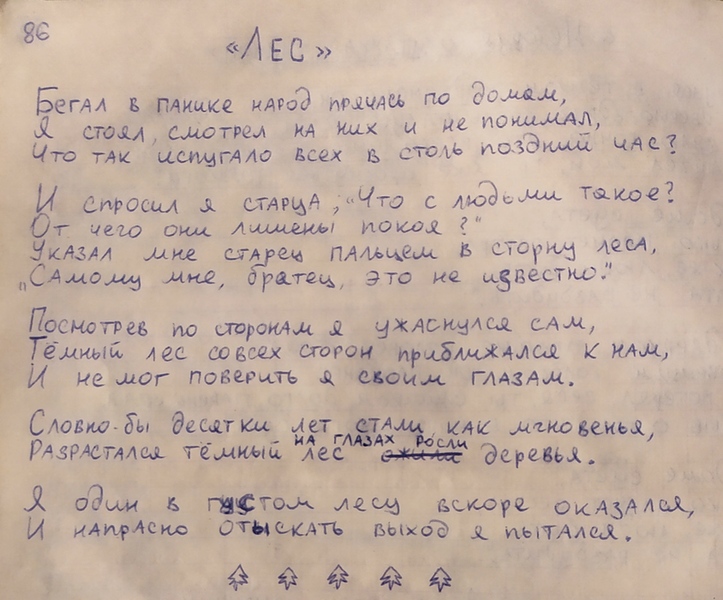 86
«ЛЕС»
Бегал в панике народ прячась по домам,
Я стоял, смотрел на них и не понимал,
Что так испугало всех в столь поздний час?
И спросил я старца; "Что с людьми такое?
От чего они лишены покоя?"
Указал мне старец пальцем в сторну леса,
„Самому мне, братец, это не известно."
Посмотрев по сторонам я ужаснулся сам,
Тёмный лес со всех сторон приближался к нам,
И не мог поверить я своим глазам.
Словно-бы десятки лет стали как мгновенья,
Разрастался тёмный лес на глазах росли ожили деревья.
Я один в густом лесу вскоре оказался,
И напрасно отыскать выход я пытался.